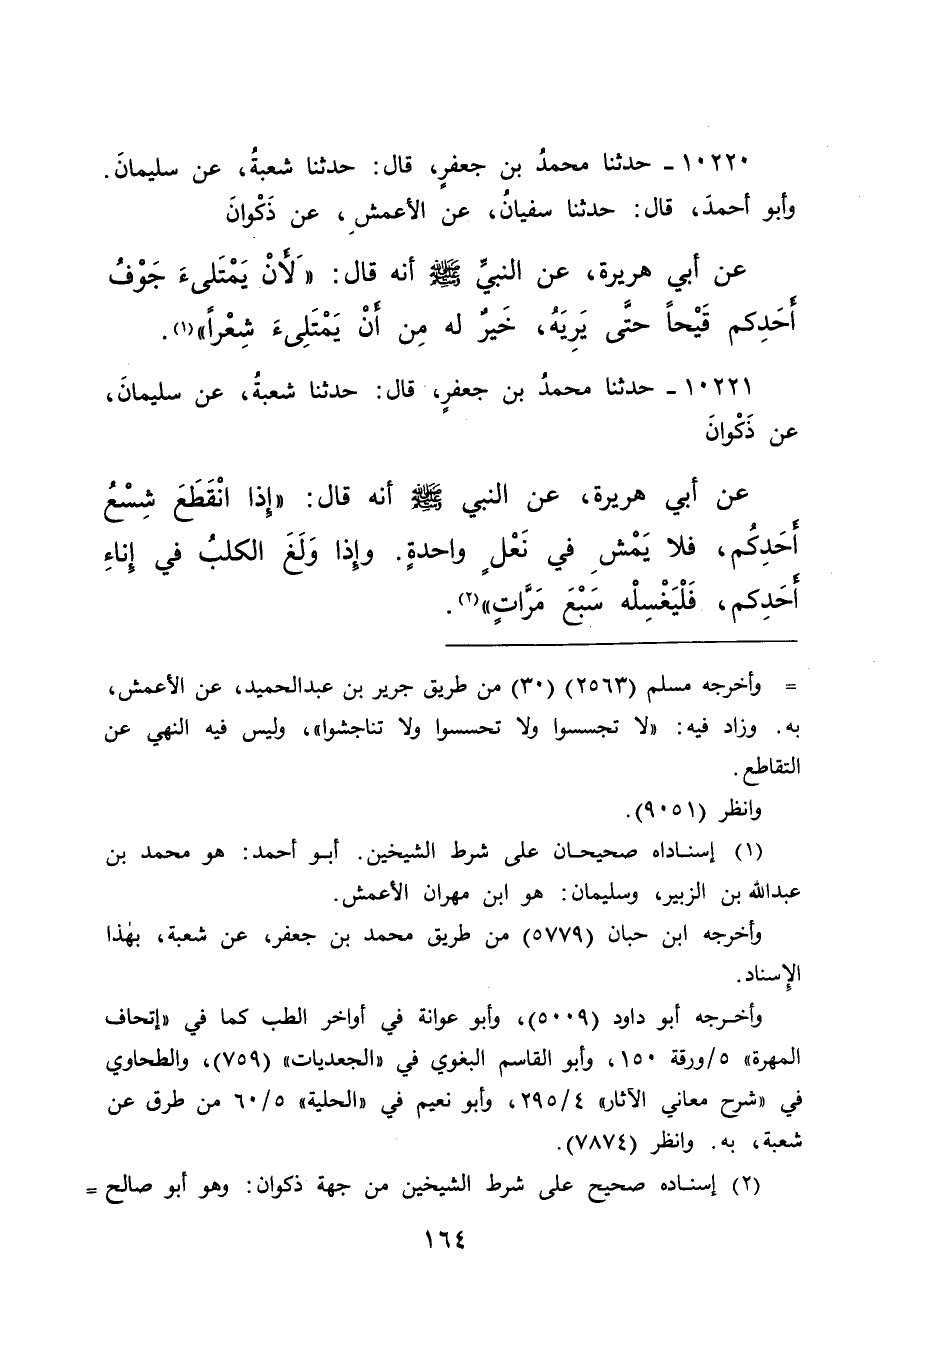 ١٠٢٢٠ - حدثنا محمدُ بن جعفرٍ، قال: حدثنا شعبةُ، عن سليمانَ.
وأبو أحمدَ، قال: حدثنا سفيانُ، عن الأعمشِ، عن ذَكْوانَ
عن أبي هريرة، عن النبيِّ ﷺ أنه قال: «لَأَنْ يَمْتَلىءَ جَوْفُ
أَحَدِكم قَيْحاً حتَّى يَرِيَهُ، خَيرٌ له مِن أَنْ يَمْتَلِىءَ شِعْراً»(١).
١٠٢٢١ - حدثنا محمدُ بن جعفرٍ، قال: حدثنا شعبةُ، عن سليمانَ،
عن ذَكْوانَ
عن أبي هريرة، عن النبي ﷺ أنه قال: «إِذا انْقَطَعَ شِسْعُ
أَحَدِكُم، فلا يَمْشِ في نَعْلٍ واحدةٍ. وإِذا وَلَغَ الكلبُ في إِناءِ
أَحَدِكم، فَلْيَغْسِلْه سَبْعَ مَرَّاتٍ»(٢).
= وأخرجه مسلم (٢٥٦٣) (٣٠) من طريق جرير بن عبدالحميد، عن الأعمش،
به. وزاد فيه: «لا تجسسوا ولا تحسسوا ولا تناجشوا»، وليس فيه النهي عن
التقاطع.
وانظر (٩٠٥١).
(١) إسناداه صحيحان على شرط الشيخين. أبو أحمد: هو محمد بن
عبدالله بن الزبير، وسليمان: هو ابن مهران الأعمش.
وأخرجه ابن حبان (٥٧٧٩) من طريق محمد بن جعفر، عن شعبة، بهٰذا
الإِسناد.
وأخرجه أبو داود (٥٠٠٩)، وأبو عوانة في أواخر الطب كما في «إتحاف
المهرة» ٥/ورقة ١٥٠، وأبو القاسم البغوي في «الجعديات» (٧٥٩)، والطحاوي
في «شرح معاني الآثار» ٢٩٥/٤، وأبو نعيم في «الحلية» ٦٠/٥ من طرق عن
شعبة، به. وانظر (٧٨٧٤).
(٢) إسناده صحيح على شرط الشيخين من جهة ذكوان: وهو أبو صالح =
١٦٤